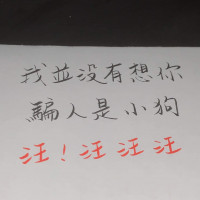 我並没有想你
騙人是小狗
汪！汪汪汪